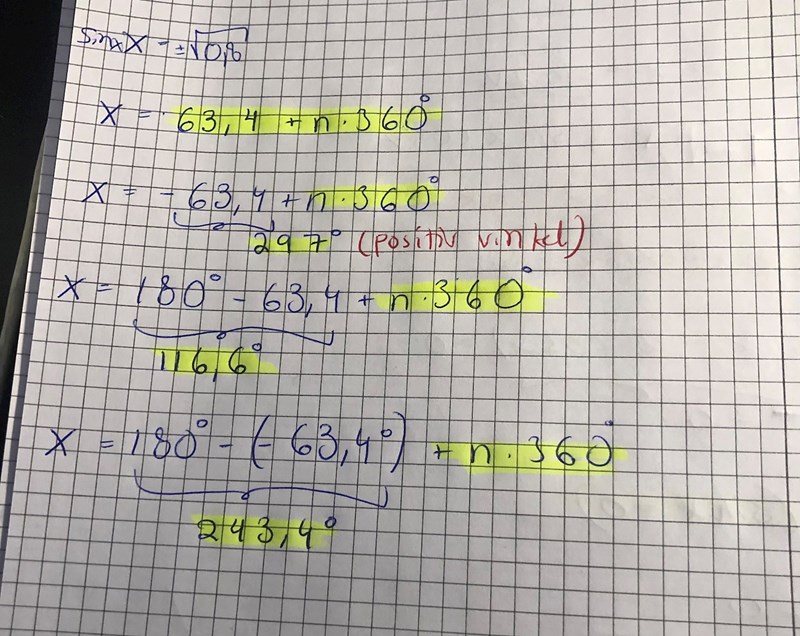 sinx = ±√0,8
x = 63,4 + n·360°
x = -63,4 + n·360°
297° (positiv vinkel)
x = 180° - 63,4 + n·360°
116,6°
x = 180° - (-63,4°) + n·360°
243,4°